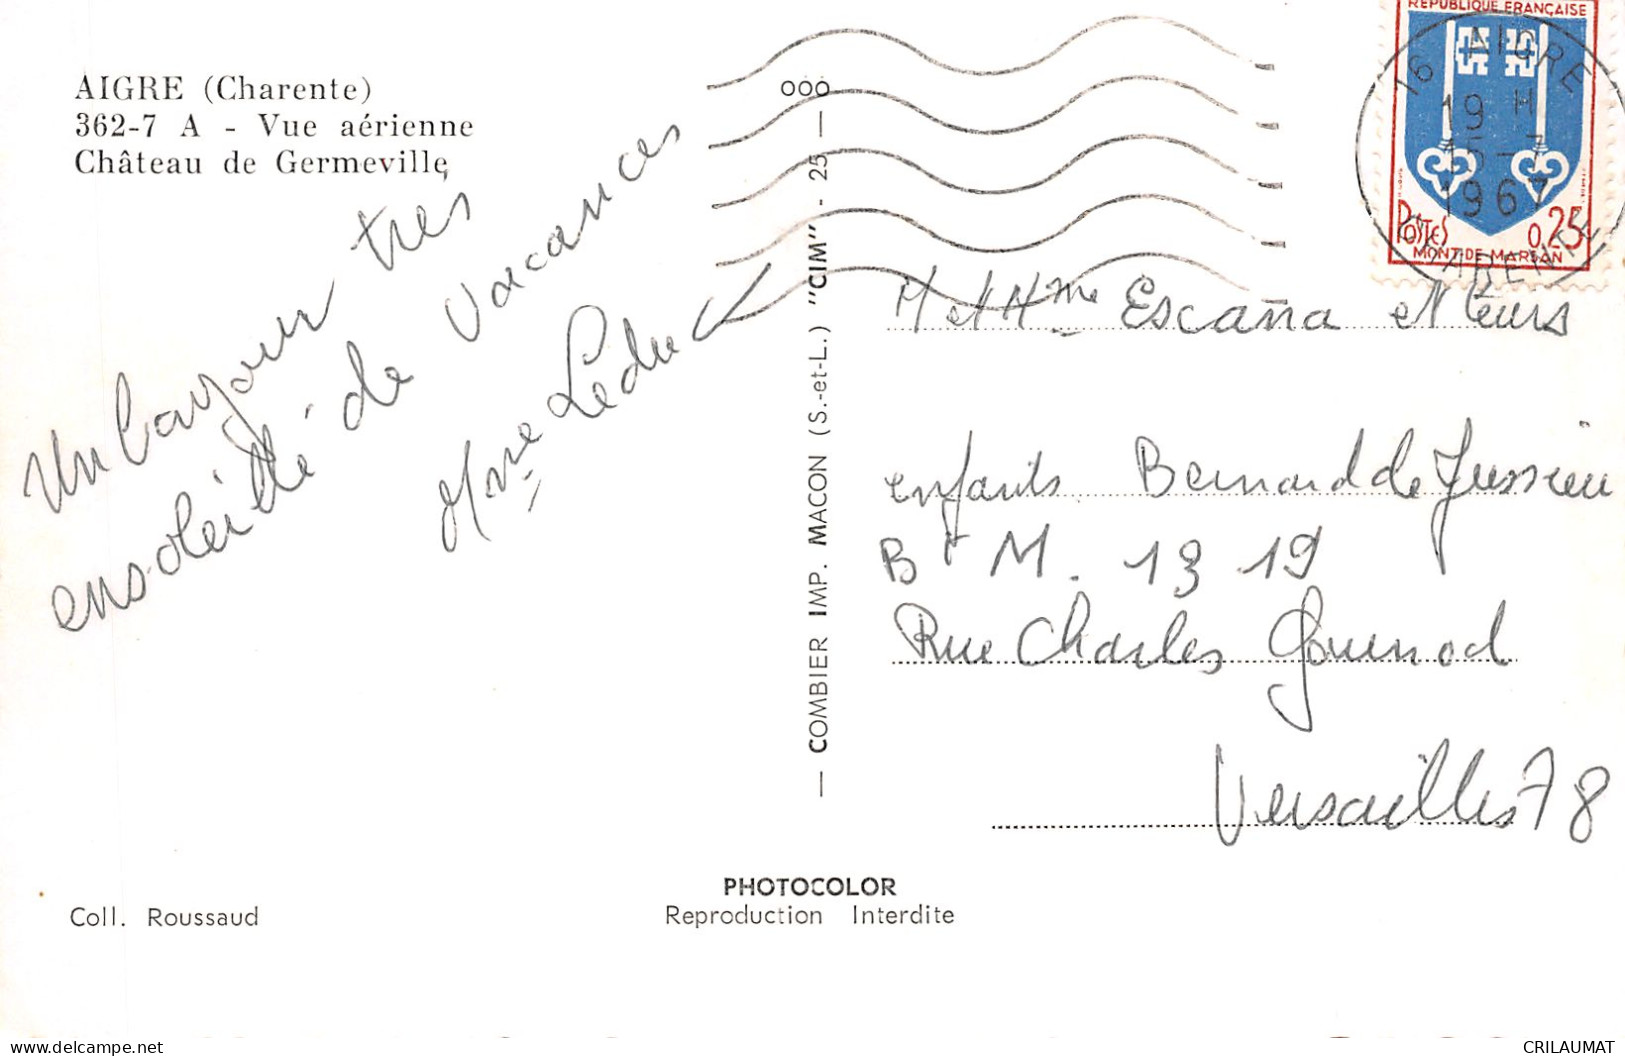 AIGRE (Charente)
362-7 A - Vue aérienne
Château de Germeville
Un bonjour tres
ensoleillé de vacances
Mme Leduc
— COMBIER IMP. MACON (S.-et-L.) "CIM" - 25 —
ooo
REPUBLIQUE FRANÇAISE
POSTES
0,25
MONT-DE-MARSAN
16 AIGRE
19 H
15-7
1967
CHARENTE
M et Mme Escaña et leurs
enfants Bernard de Jussieu
Bt M. 13 19
Rue Charles Gounod
Versailles 78
PHOTOCOLOR
Reproduction Interdite
Coll. Roussaud
delcampe.net
CRILAUMAT